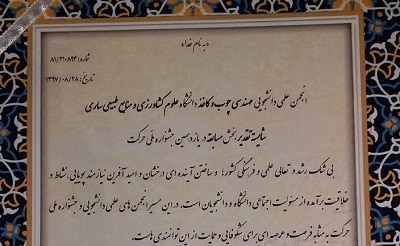 «به نام خدا»
شماره: ۸۱/۲۱۰۸۹۴
تاریخ: ۱۳۹۷/۰۸/۲۸
انجمن علمی دانشجویی مهندسی چوب و کاغذ دانشگاه علوم کشاورزی و منابع طبیعی ساری
شایسته تقدیر بخش مسابقه در یازدهمین جشنواره ملی حرکت
بی شک رشد و تعالی علمی و فرهنگی کشور؛ و ساختن آینده ای درخشان و امید آفرین نیازمند پویایی، نشاط و
خلاقیت برآمده از مسئولیت اجتماعی دانشگاه و دانشجویان است. در این مسیر انجمن های علمی دانشجویی و جشنواره ملی
حرکت به مثابه فرصت و عرصه ای برای شکوفایی و حمایت از این توانمندی هاست.